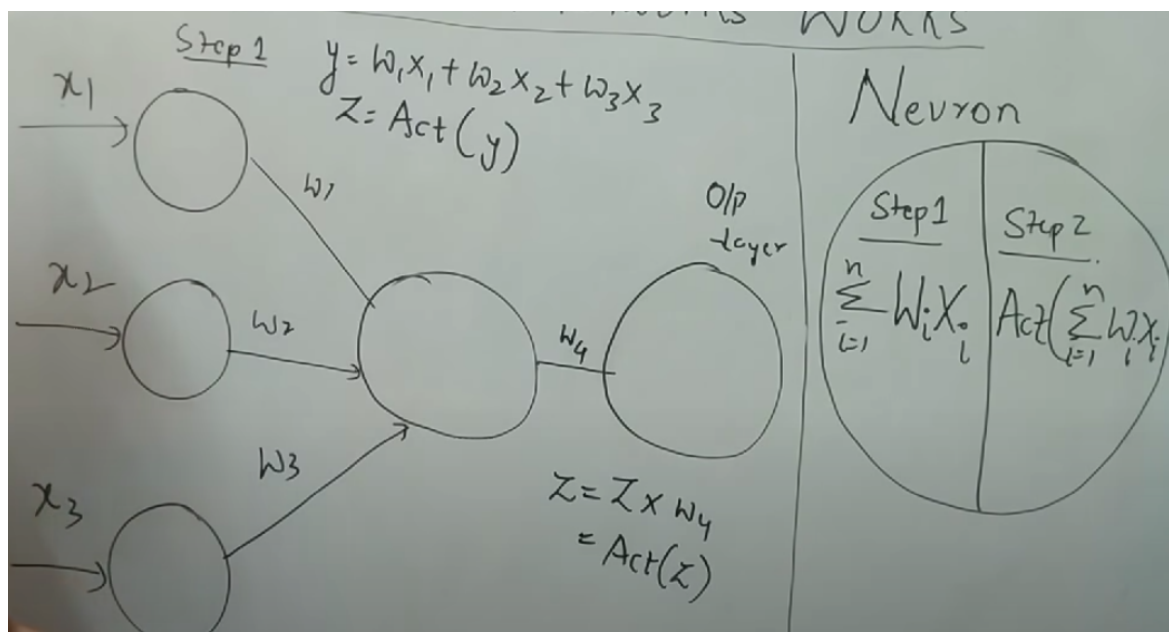 WORKS
Step 1
y = w₁x₁ + w₂x₂ + w₃x₃
z = Act(y)
x1
w1
x2
w2
x3
w3
w4
O/P
layer
z = z x w₄
= Act(z)
Neuron
Step 1
n
Σ WᵢXᵢ
i=1
Step 2
n
Act(Σ WᵢXᵢ
i=1